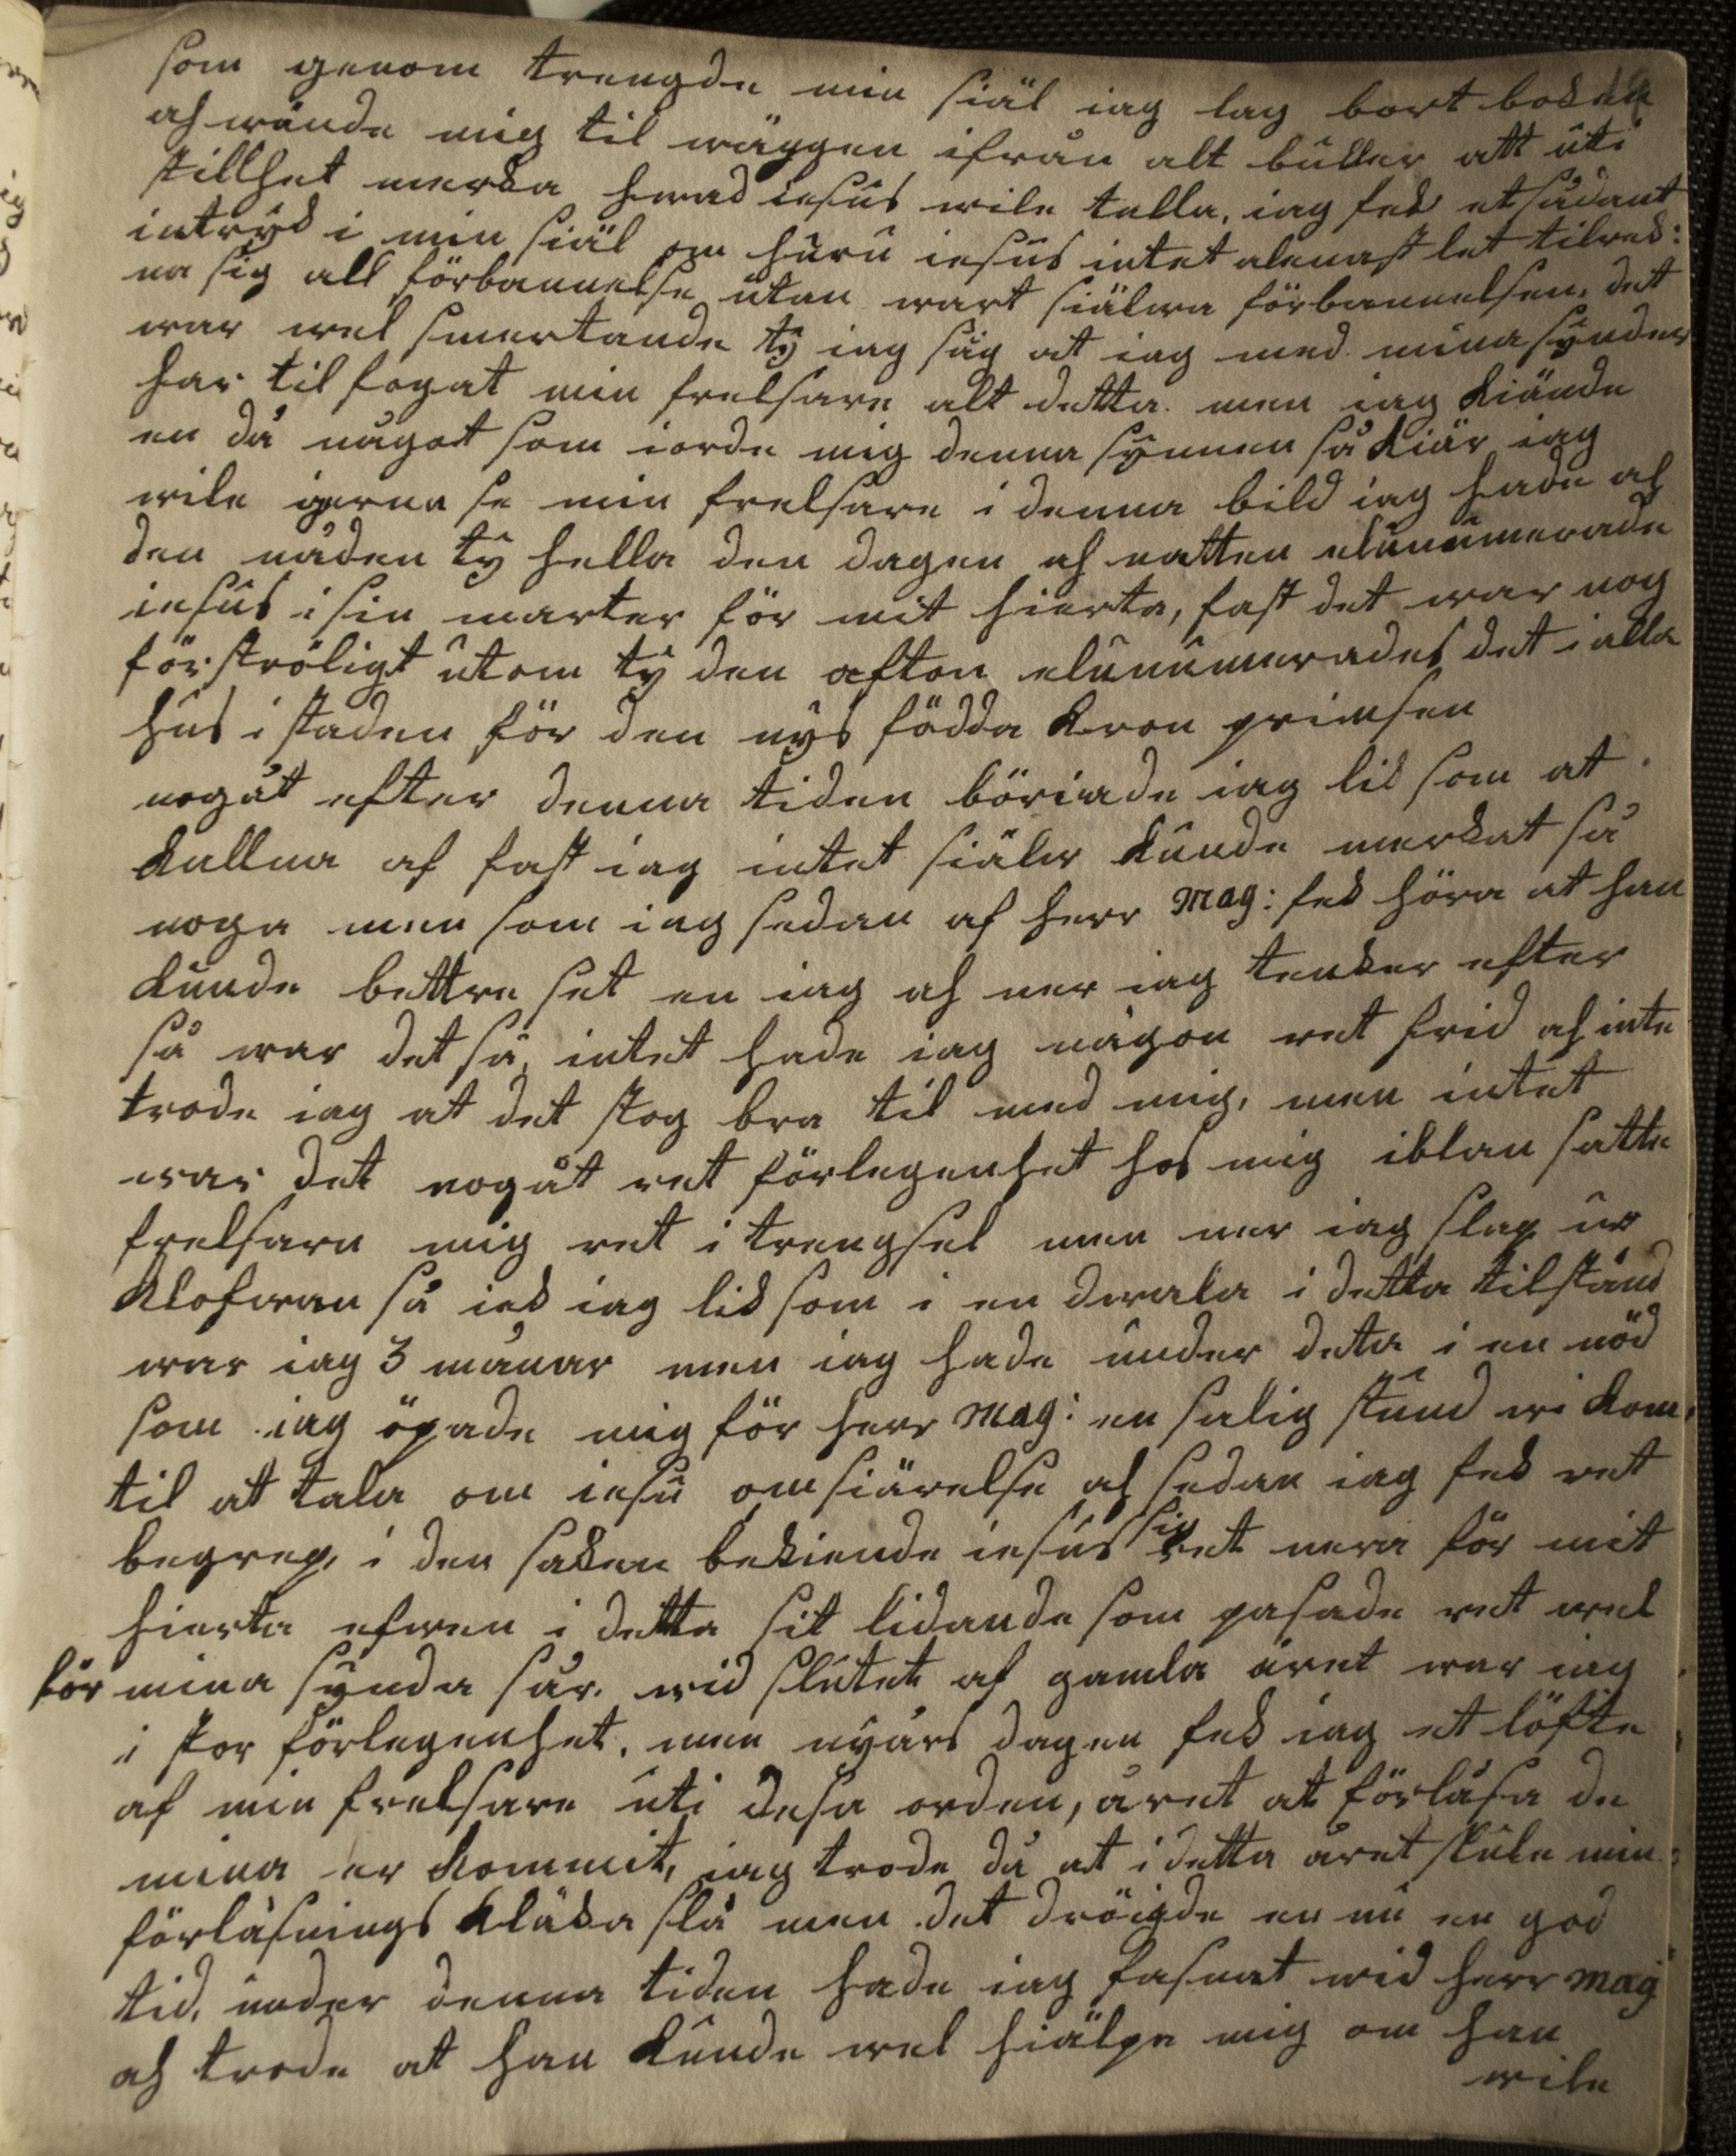 som genom trengde min siäl iag lag bort boken
ah wände mig til wäggen ifrån alt buller att uti
stillhet merka hwad iesus wile talla, iag fek et sådant
intryk i min siäl om huru iesus intet alenast let tilrek:
na sig all förbannelse utan wart siälwa förbannelsen, det
war wel smertande ty iag såg at iag med mina synder
har til fogat min frelsare alt detta. men iag kiände
en då något som iorde mig denna synnen så kiär iag
wile gerna se min frelsare i denna bild iag hade ah
den nåden ty hella den dagen ah natten elununerade
iesus i sin marter för mit hierta, fast det war nog
förströligt utom ty den afton elununerades det i alla
hus i staden för den nys födda kron prinsen
nogåt efter denna tiden böriade iag lik som at
kallna af fast iag intet siälw kunde merkat så
noga men som iag sedan af herr Mag: fek höra at han
kunde bettre set en iag ah ner iag tenker efter
så war det så, intet hade iag någon ret frid ah inte
trode iag at det stog bra til med mig, men intet
war det nogåt ret förlegenhet hos mig iblan satte
frelsarn mig ret i trengsel men ner iag slap ur
klofwan så iek iag lik som i en dwala i detta tilstånd
war iag 3 månar men iag hade under deta i en nöd
som iag öpade mig för herr Mag: en salig stund wi kom,
til at tala om iesu omsiärelse ah sedan iag fek ret
begrep, i den saken bekiende iesus sig ret nera för mit
hierta efwen i detta sit lidande som pasade ret wel
för mina synda sår. wid slutet af gamla året war iag
i stor förlegenhet, men nyårs dagen fek iag et löfte
af min frelsare uti desa orden, året at förlåsa de
mina er kommit, iag trode då at i detta året skule min
förlåsnings klåka slå men det dröigde en nu en god
tid, under denna tiden hade iag fasnat wid herr Mag
ah trode at han kunde wel hiälpe mig om han
wile